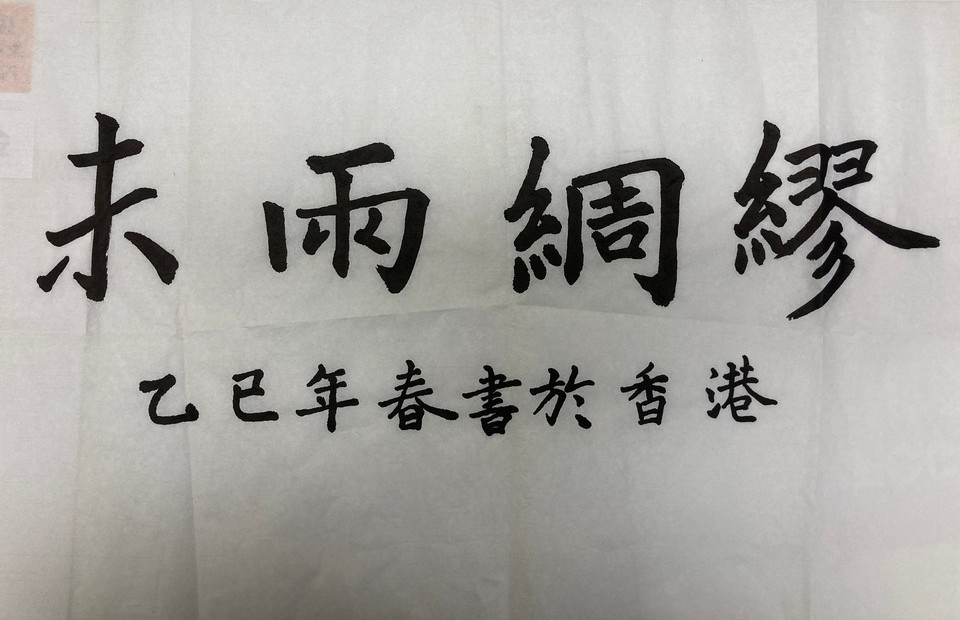 未雨綢繆
乙巳年春書於香港